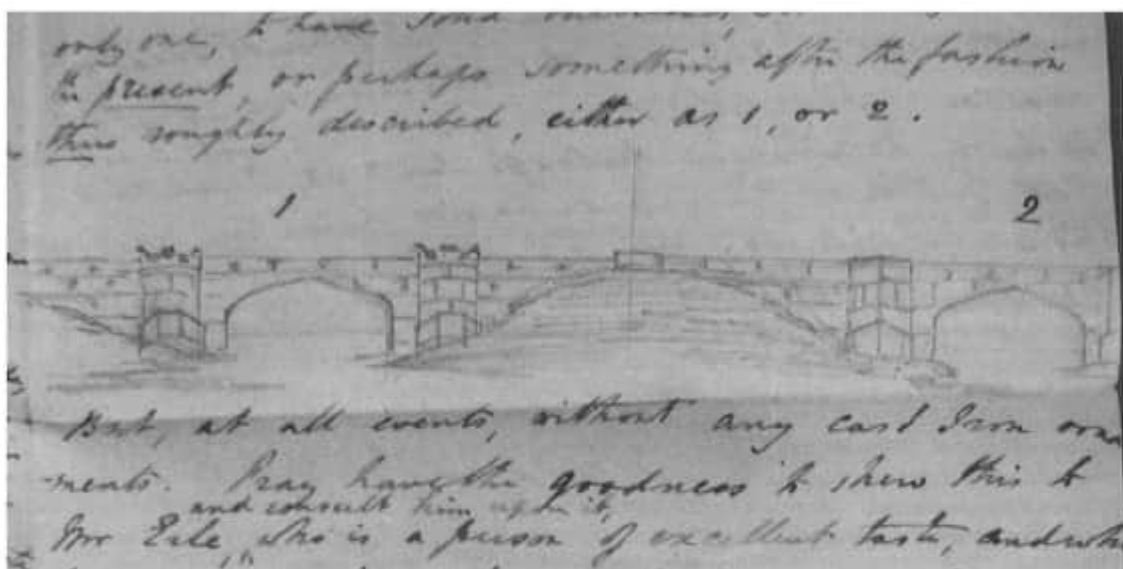 only one, to have
the present, or perhaps something after the fashion
thus roughly described, either as 1, or 2.
1
2
But, at all events, without any cast Iron orna
-ments. Pray have the goodness to shew this to
and consult him upon it,
Mr who is a person of excellent taste, and